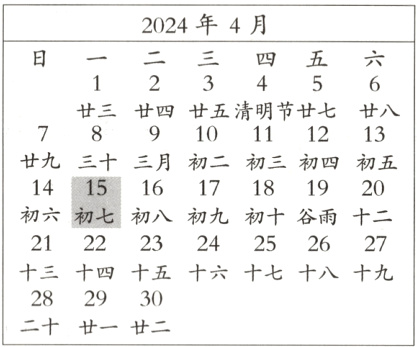 2024 年 4 月
日 一 二 三 四 五 六
1 2 3 4 5 6
廿三 廿四 廿五 清明节 廿七 廿八
7 8 9 10 11 12 13
廿九 三十 三月 初二 初三 初四 初五
14 15 16 17 18 19 20
初六 初七 初八 初九 初十 谷雨 十二
21 22 23 24 25 26 27
十三 十四 十五 十六 十七 十八 十九
28 29 30
二十 廿一 廿二